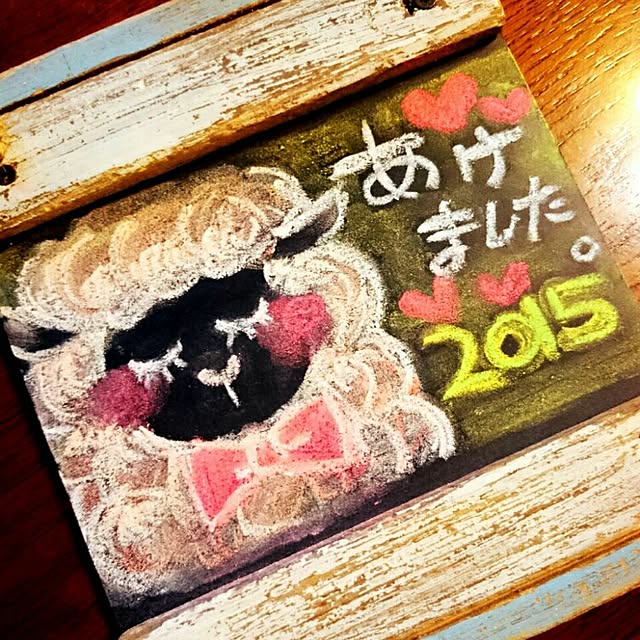 あけ
ました。
2015